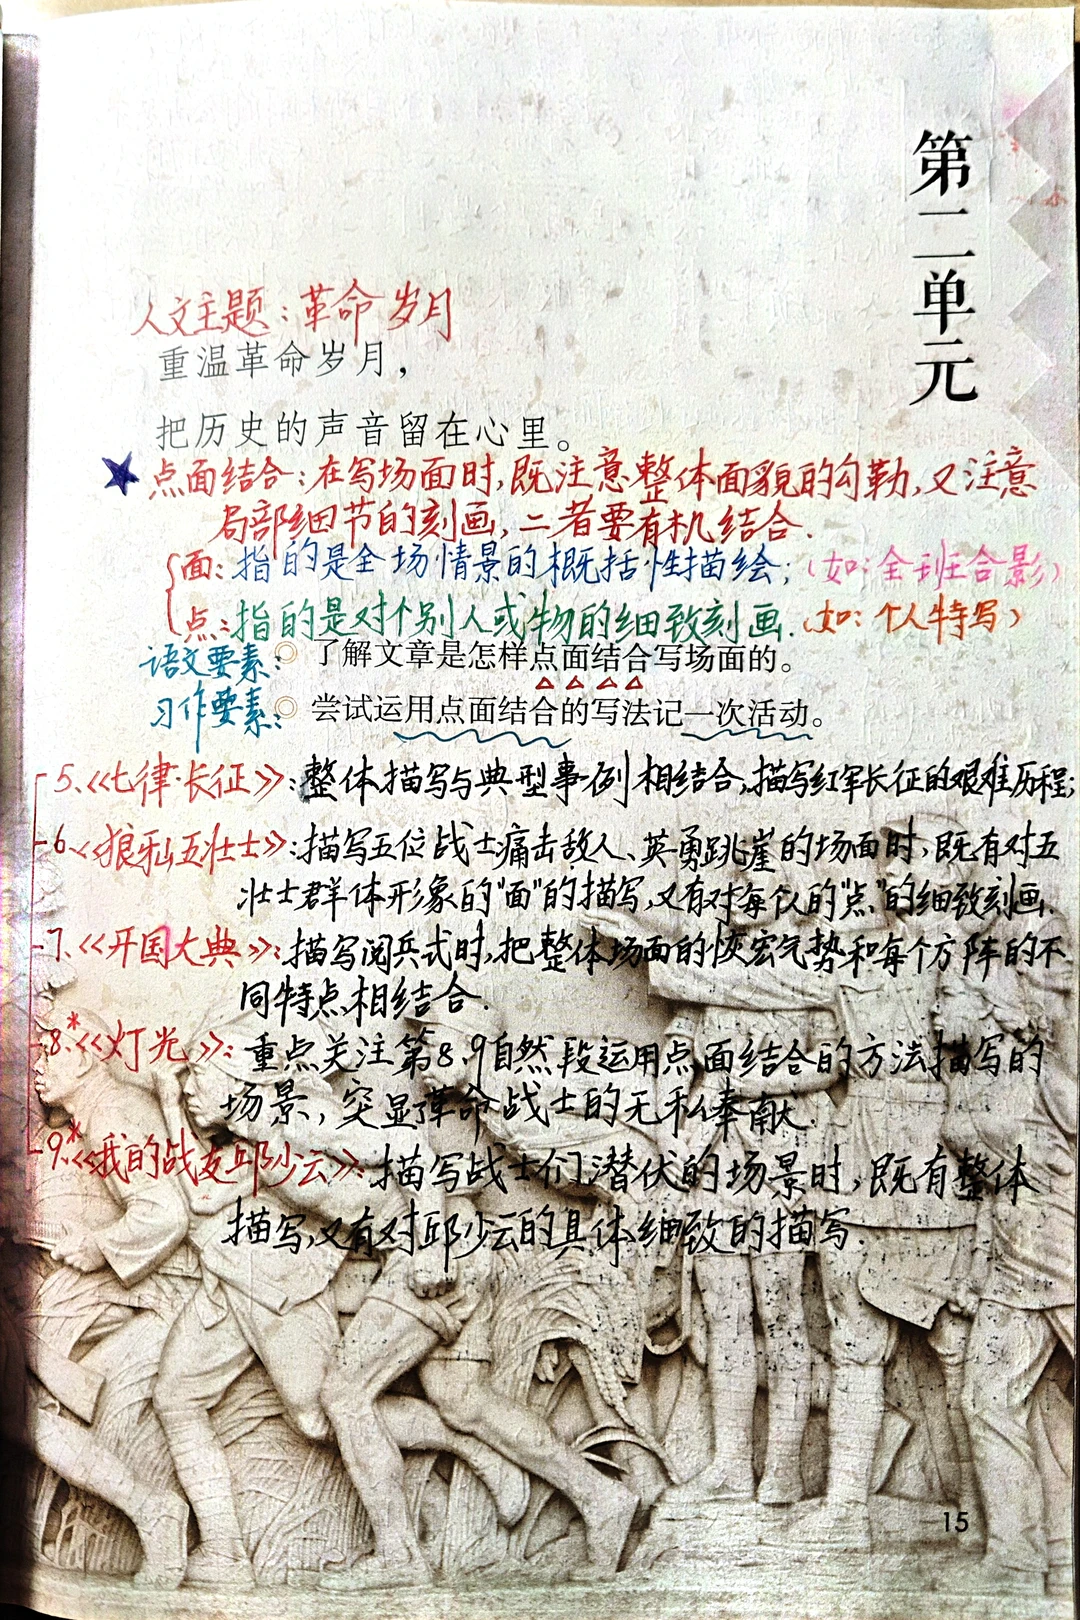 第二单元
人文主题：革命岁月
重温革命岁月，
把历史的声音留在心里。
点面结合：在写场面时，既注意整体面貌的勾勒，又注意
局部细节的刻画，二者要有机结合.
面：指的是全场情景的概括性描绘；（如：全班合影）
点：指的是对个别人或物的细致刻画.（如：个人特写）
语文要素：◎ 了解文章是怎样点面结合写场面的。
习作要素：◎ 尝试运用点面结合的写法记一次活动。
5.《七律·长征》：整体描写与典型事例相结合，描写红军长征的艰难历程；
6.《狼牙山五壮士》：描写五位战士痛击敌人、英勇跳崖的场面时，既有对五
壮士群体形象的"面"的描写，又有对每个人的"点"的细致刻画.
7.《开国大典》：描写阅兵式时，把整体场面的恢宏气势和每个方阵的不
同特点相结合.
8.*《灯光》：重点关注第8、9自然段运用点面结合的方法描写的
场景，突显革命战士的无私奉献.
9.*《我的战友邱少云》：描写战士们潜伏的场景时，既有整体
描写，又有对邱少云的具体细致的描写.
15